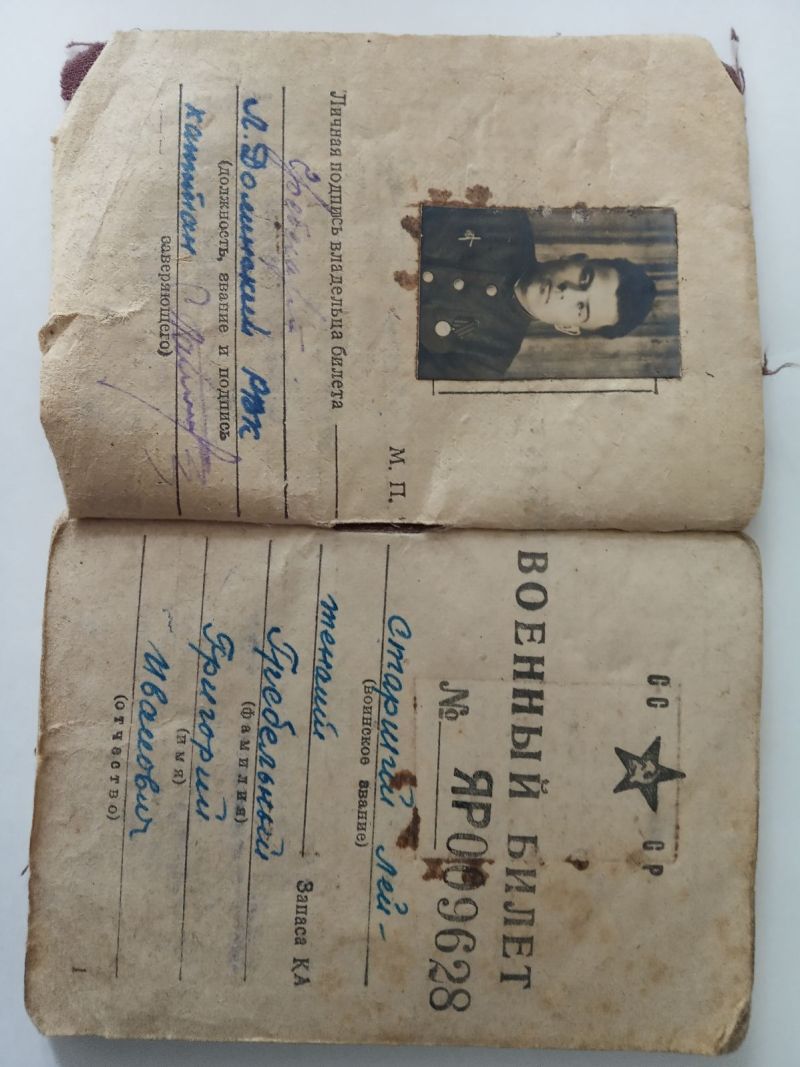 М. П.
Личная подпись владельца билета
Гребельный
л. Долинский РВК
(должность, звание и подпись
капитан
заверяющего)
СС СР
ВОЕННЫЙ БИЛЕТ
№ ЯР069628
Старший лей-
(воинское звание)
тенант Запаса КА
Гребельный
(фамилия)
Григорий
(имя)
Иванович
(отчество)
1